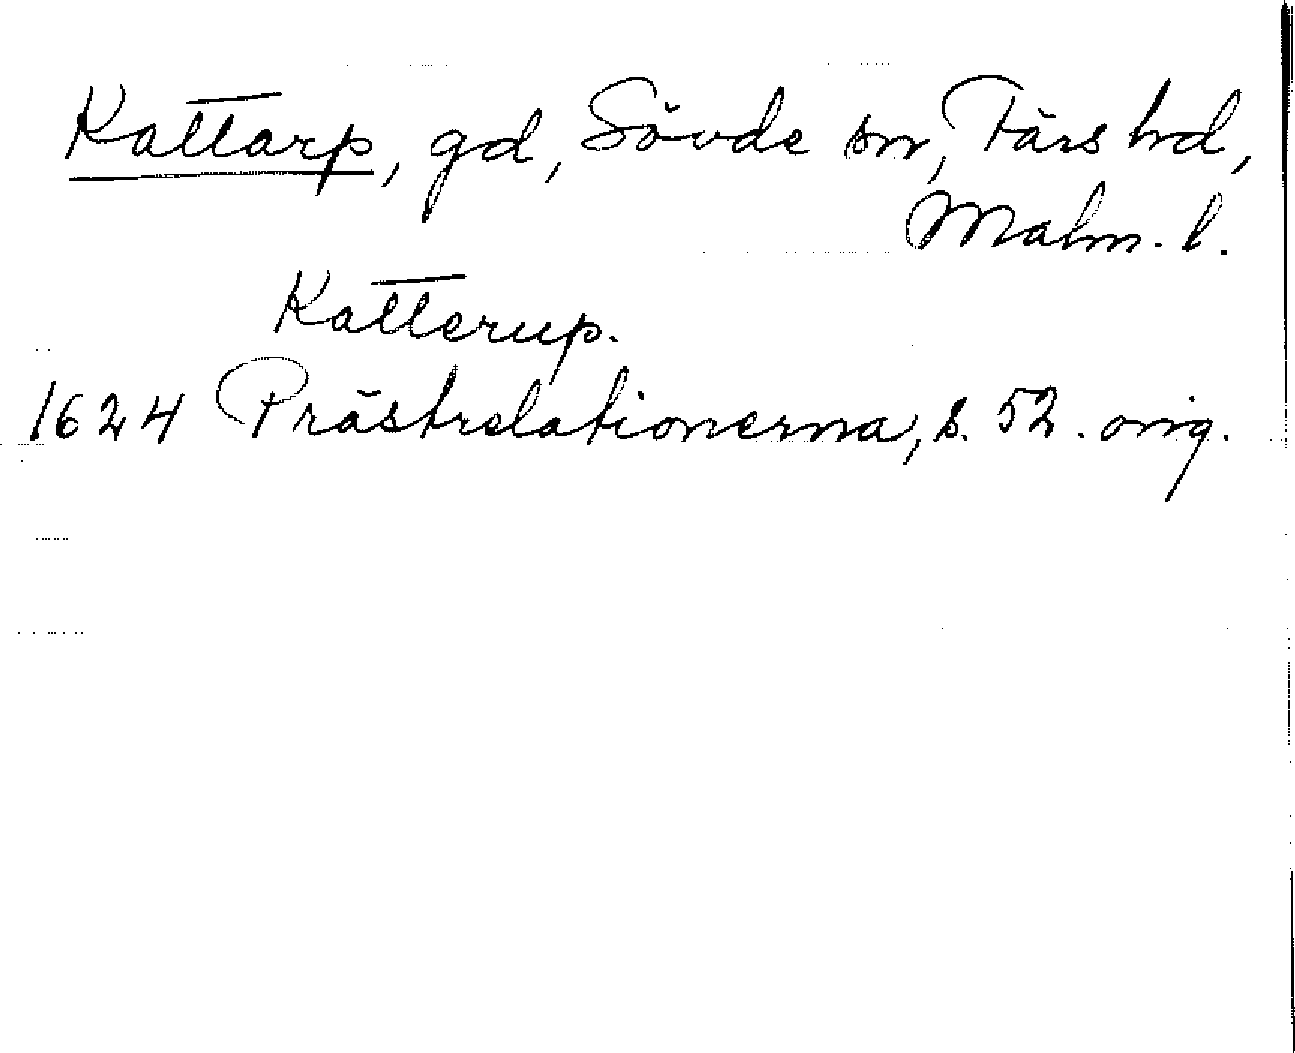 Kattarp, gd, Sövde sn, Färs hd,
Malm. l.
Katterup.
1624 Prästrelationerna, s. 52. orig.